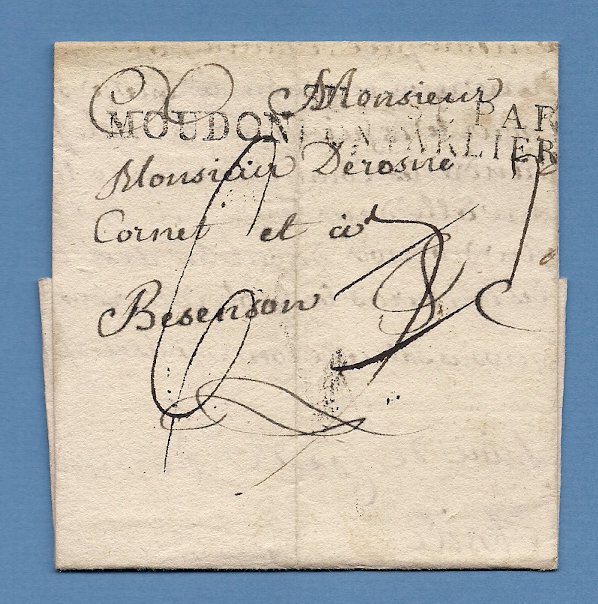 Monsieur
MOUDON PAR
ARLIER
Monsieur Derosne
Cornet et à
Besenson